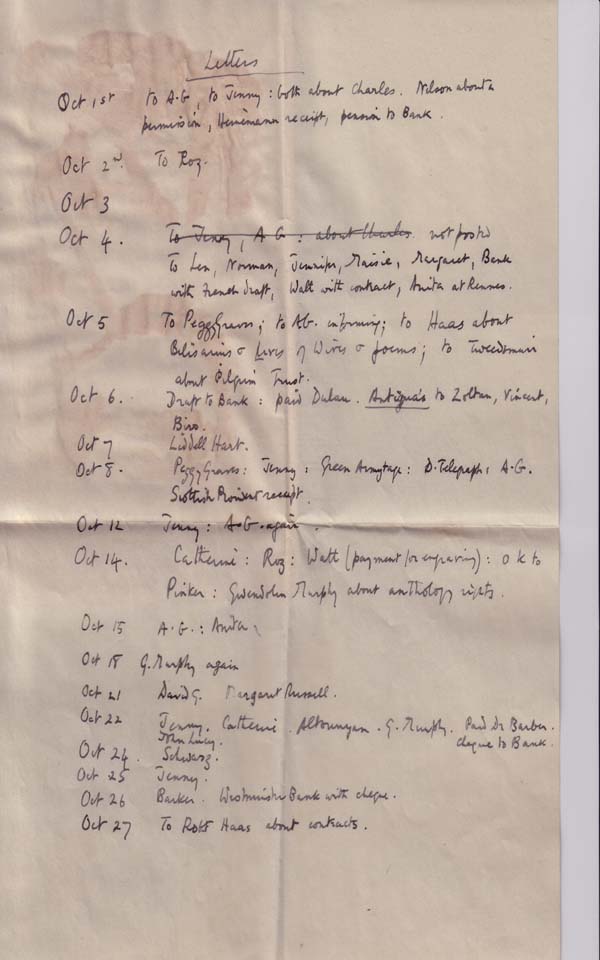 Letters
Oct 1st to A.G, to Jenny: both about Charles. Nelson about a
permission, Heinemann receipt, pension to Bank.
Oct 2nd. To Roz.
Oct 3
Oct 4. To Jenny, A G: about Charles. not posted
To Len, Norman, Jennifer, Maisie, Margaret, Bank
with French draft, Watt with contract, Anita at Rennes.
Oct 5 To Peggy Graves; to AG. informing; to Haas about
Belisarius & Lives of Wives & poems; to Tweedsmuir
about Pilgrim Trust.
Oct 6. Draft to Bank: paid Dulau. Antigua's to Zoltan, Vincent,
Biro.
Oct 7 Liddell Hart.
Oct 8. Peggy Graves: Jenny: Green Armytage: D. Telegraph: A.G.
Scottish Provident receipt.
Oct 12 Jenny: A.G. again.
Oct 14. Catherine: Roz: Watt (payment for engraving): O K to
Pinker: Gwendolen Murphy about anthology rights.
Oct 15 A.G.: Anita
Oct 18 G. Murphy again
Oct 21 David G. Margaret Russell.
Oct 22 Jenny. Catherine. Altounyan. G. Murphy. Paid Dr Barber.
John Lucy. cheque to Bank.
Oct 24. Schwarz.
Oct 25 Jenny.
Oct 26 Barker. Westminster Bank with cheque.
Oct 27 To Robt Haas about contracts.